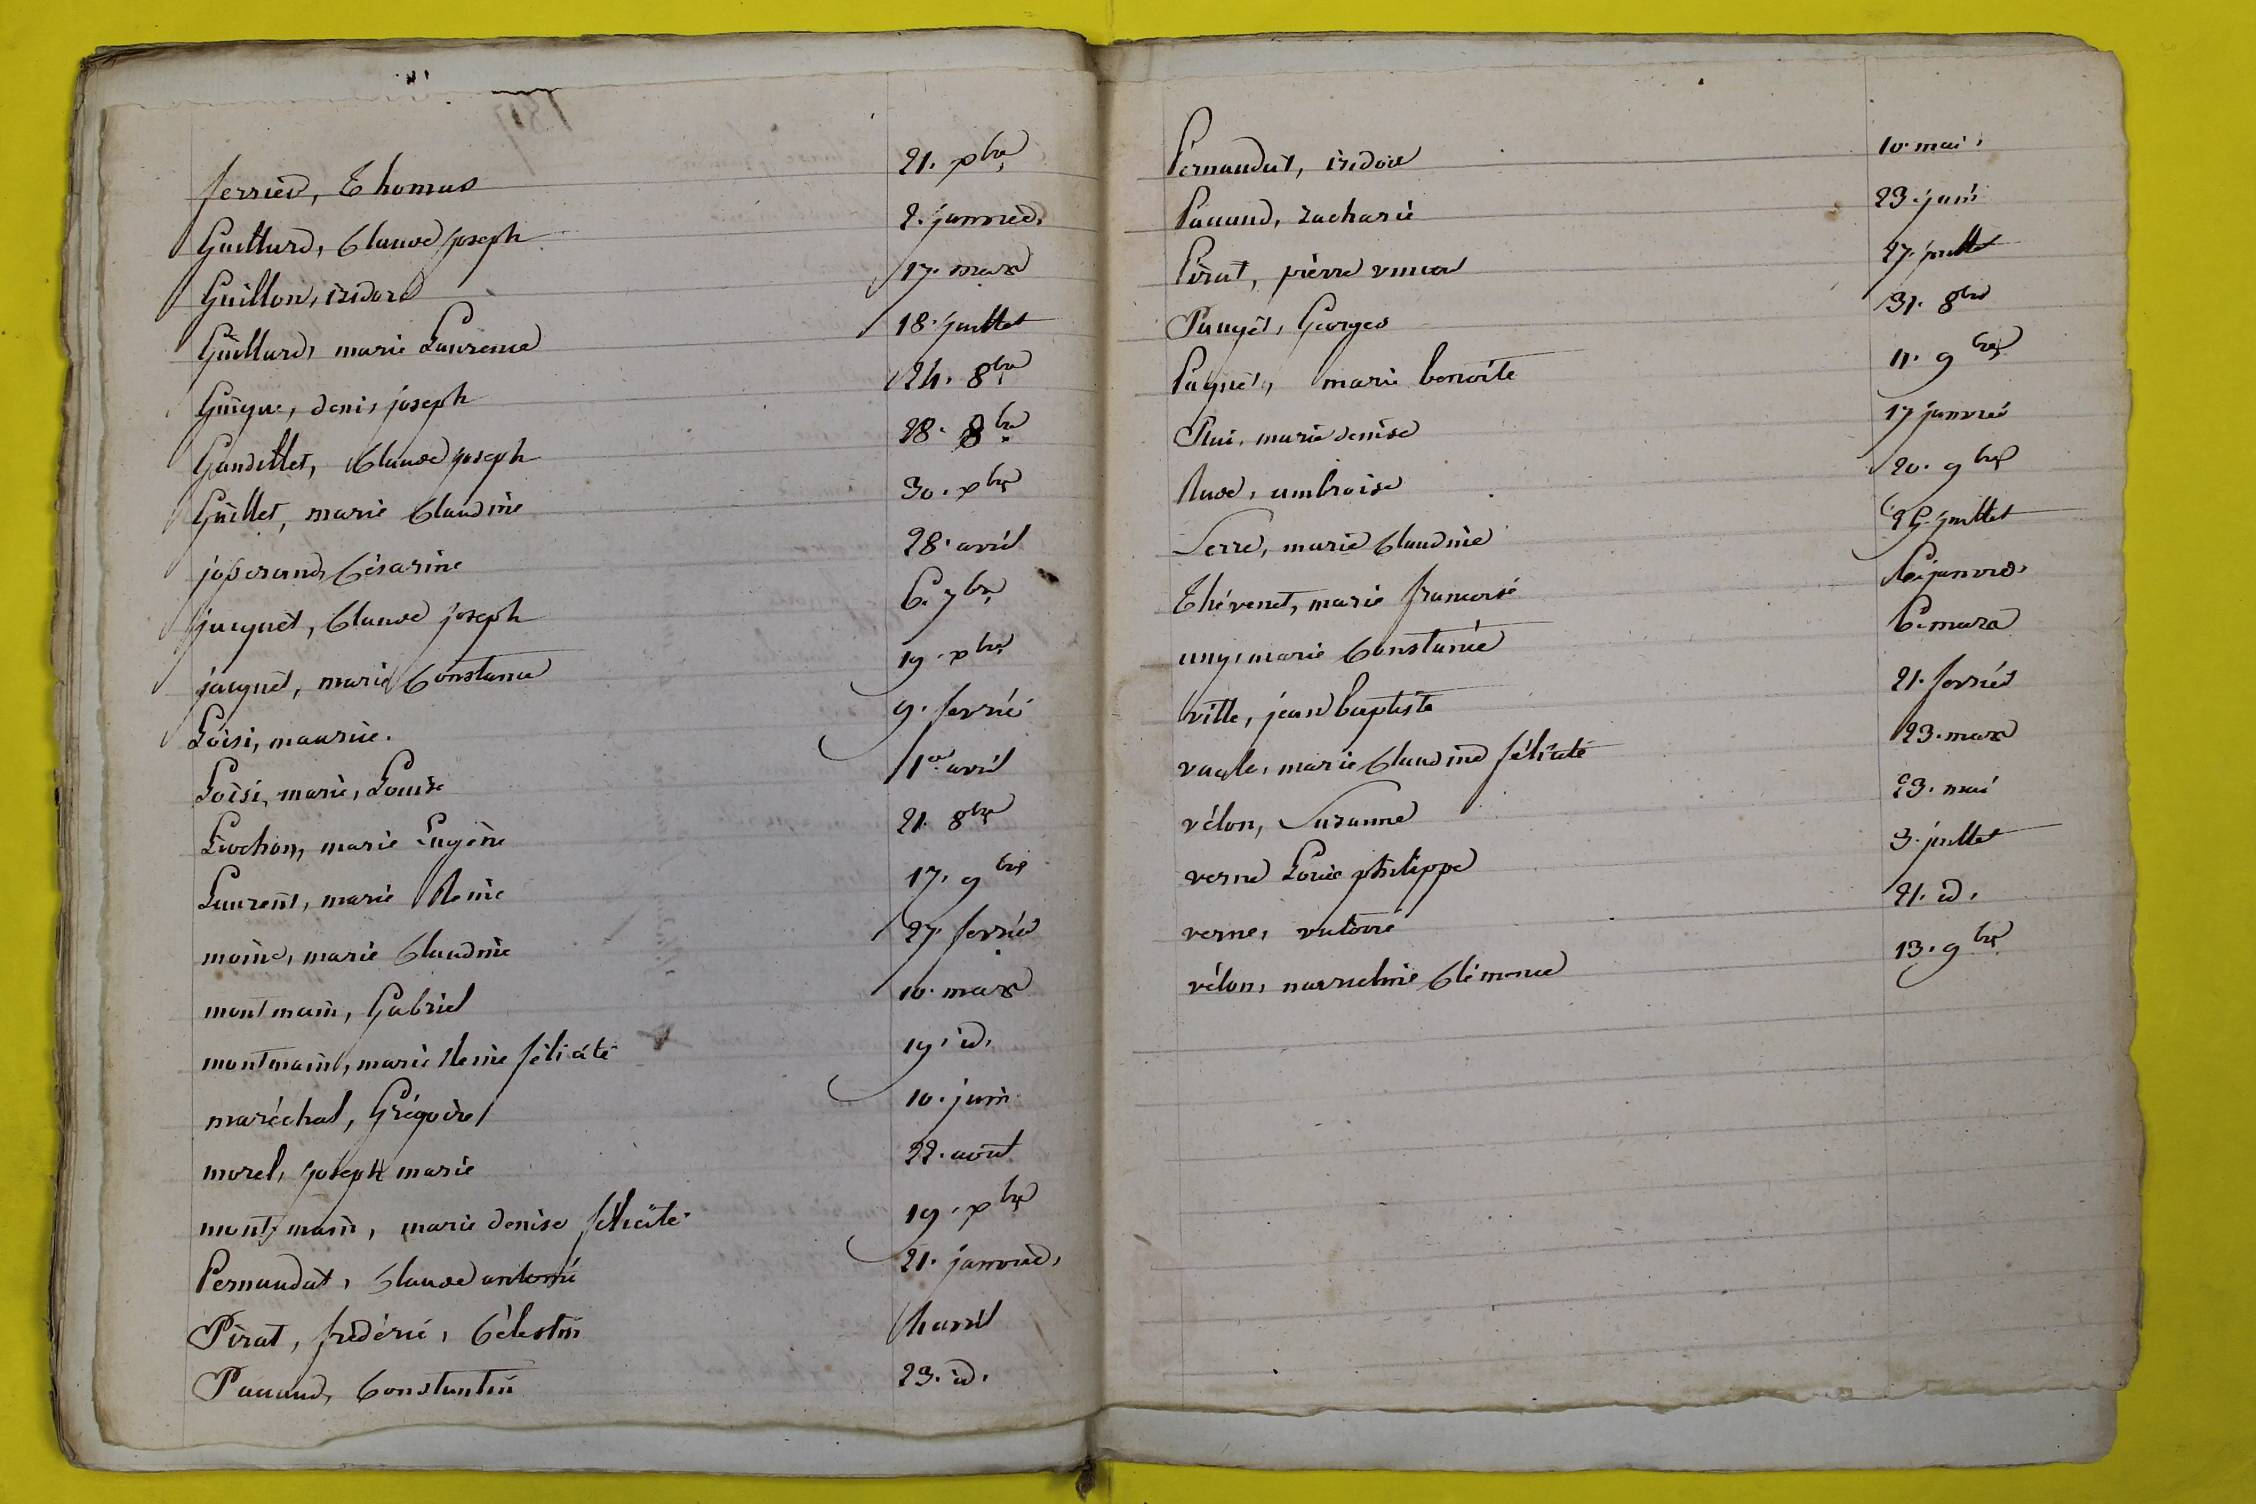 ferrier, Thomas 21. xbre
Guillard, Claude joseph 2. janvier.
Guillon, isidore 17. mars
Guillard, marie Laurence 18. juillet
Guigue, denis joseph 24. 8bre
Gandillet, Claude joseph 28. 8bre
Guillet, marie Claudine 30. xbre
josserand, Césarine 28. avril
jacquet, Claude joseph 6. 7bre
jacquet, marie Constance 19. xbre
Loisi, maurice. 9. fevrier
Loisi, marie, Louise 1er avril
Livochon, marie Eugénie 21. 8bre
Laurent, marie Reine 17. 9bre
moine, marie Claudine 27. fevrier
montmain, Gabriel 10. mars
montmain, marie Reine félicité 19. id.
maréchal, Grégoire 10. juin
morel, joseph marie 22. aout
montmain, marie denise félicité 19. xbre
Pernaudat, Claude antoine 21. janvier.
Pirat, frédéric, Célestin 4 avril
Pauaud, Constantin 23. id.
Pernaudat, isidore 10. mai.
Pauaud, zacharie 23. juin
Pirat, pierre vincent 27. juillet
Pauget, Georges 31. 8bre
Paquet, marie benoite 11. 9bre
marie denise 17 janvier
Rude, ambroise 20. 9bre
Serre, marie Claudine juillet
Thévenet, marie francoise janvier.
uny, marie Constance 6. mars
ville, jean baptiste 21. fevrier
vagle, marie Claudine félicité 23. mars
vélon, Suzanne 23. mai
verne Louis philippe 3. juillet
verne, victoire 21. id.
vélon, Clémence 13. 9bre